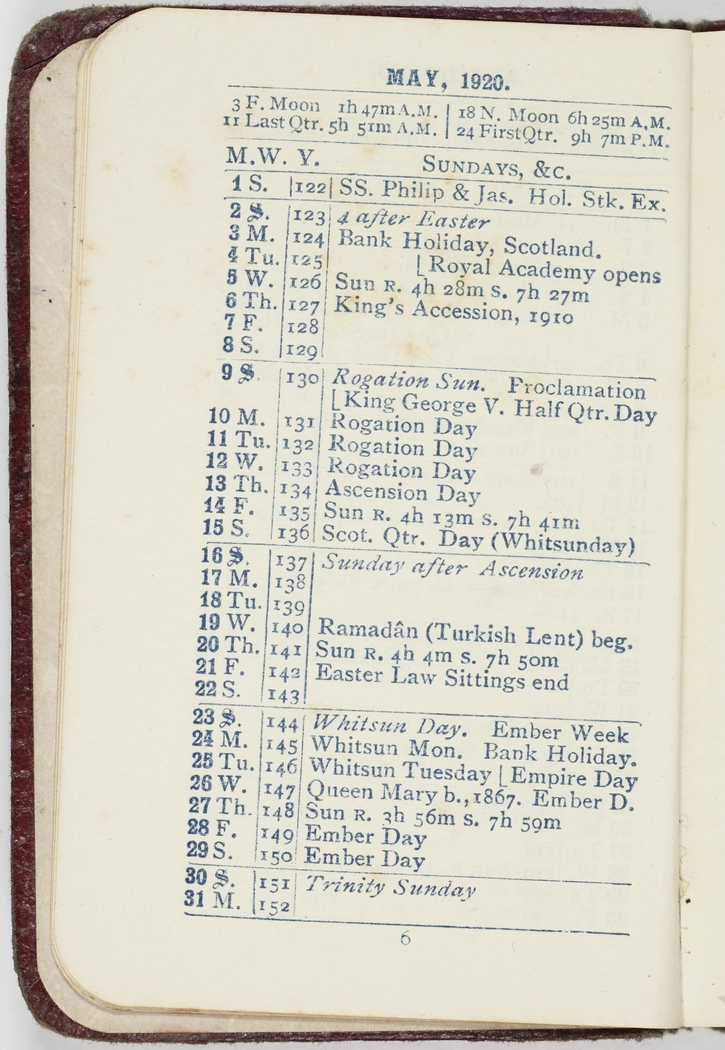 MAY, 1920.
3 F. Moon 1h 47m A.M. | 18 N. Moon 6h 25m A.M.
11 Last Qtr. 5h 51m A.M. | 24 First Qtr. 9h 7m P.M.
M.W. Y. SUNDAYS, &C.
1 S. 122 SS. Philip & Jas. Hol. Stk. Ex.
2 S. 123 4 after Easter
3 M. 124 Bank Holiday, Scotland.
4 Tu. 125 [Royal Academy opens
5 W. 126 Sun R. 4h 28m s. 7h 27m
6 Th. 127 King's Accession, 1910
7 F. 128
8 S. 129
9 S. 130 Rogation Sun. Proclamation
[King George V. Half Qtr. Day
10 M. 131 Rogation Day
11 Tu. 132 Rogation Day
12 W. 133 Rogation Day
13 Th. 134 Ascension Day
14 F. 135 Sun R. 4h 13m s. 7h 41m
15 S. 136 Scot. Qtr. Day (Whitsunday)
16 S. 137 Sunday after Ascension
17 M. 138
18 Tu. 139
19 W. 140 Ramadân (Turkish Lent) beg.
20 Th. 141 Sun R. 4h 4m s. 7h 50m
21 F. 142 Easter Law Sittings end
22 S. 143
23 S. 144 Whitsun Day. Ember Week
24 M. 145 Whitsun Mon. Bank Holiday.
25 Tu. 146 Whitsun Tuesday [Empire Day
26 W. 147 Queen Mary b., 1867. Ember D.
27 Th. 148 Sun R. 3h 56m s. 7h 59m
28 F. 149 Ember Day
29 S. 150 Ember Day
30 S. 151 Trinity Sunday
31 M. 152
6